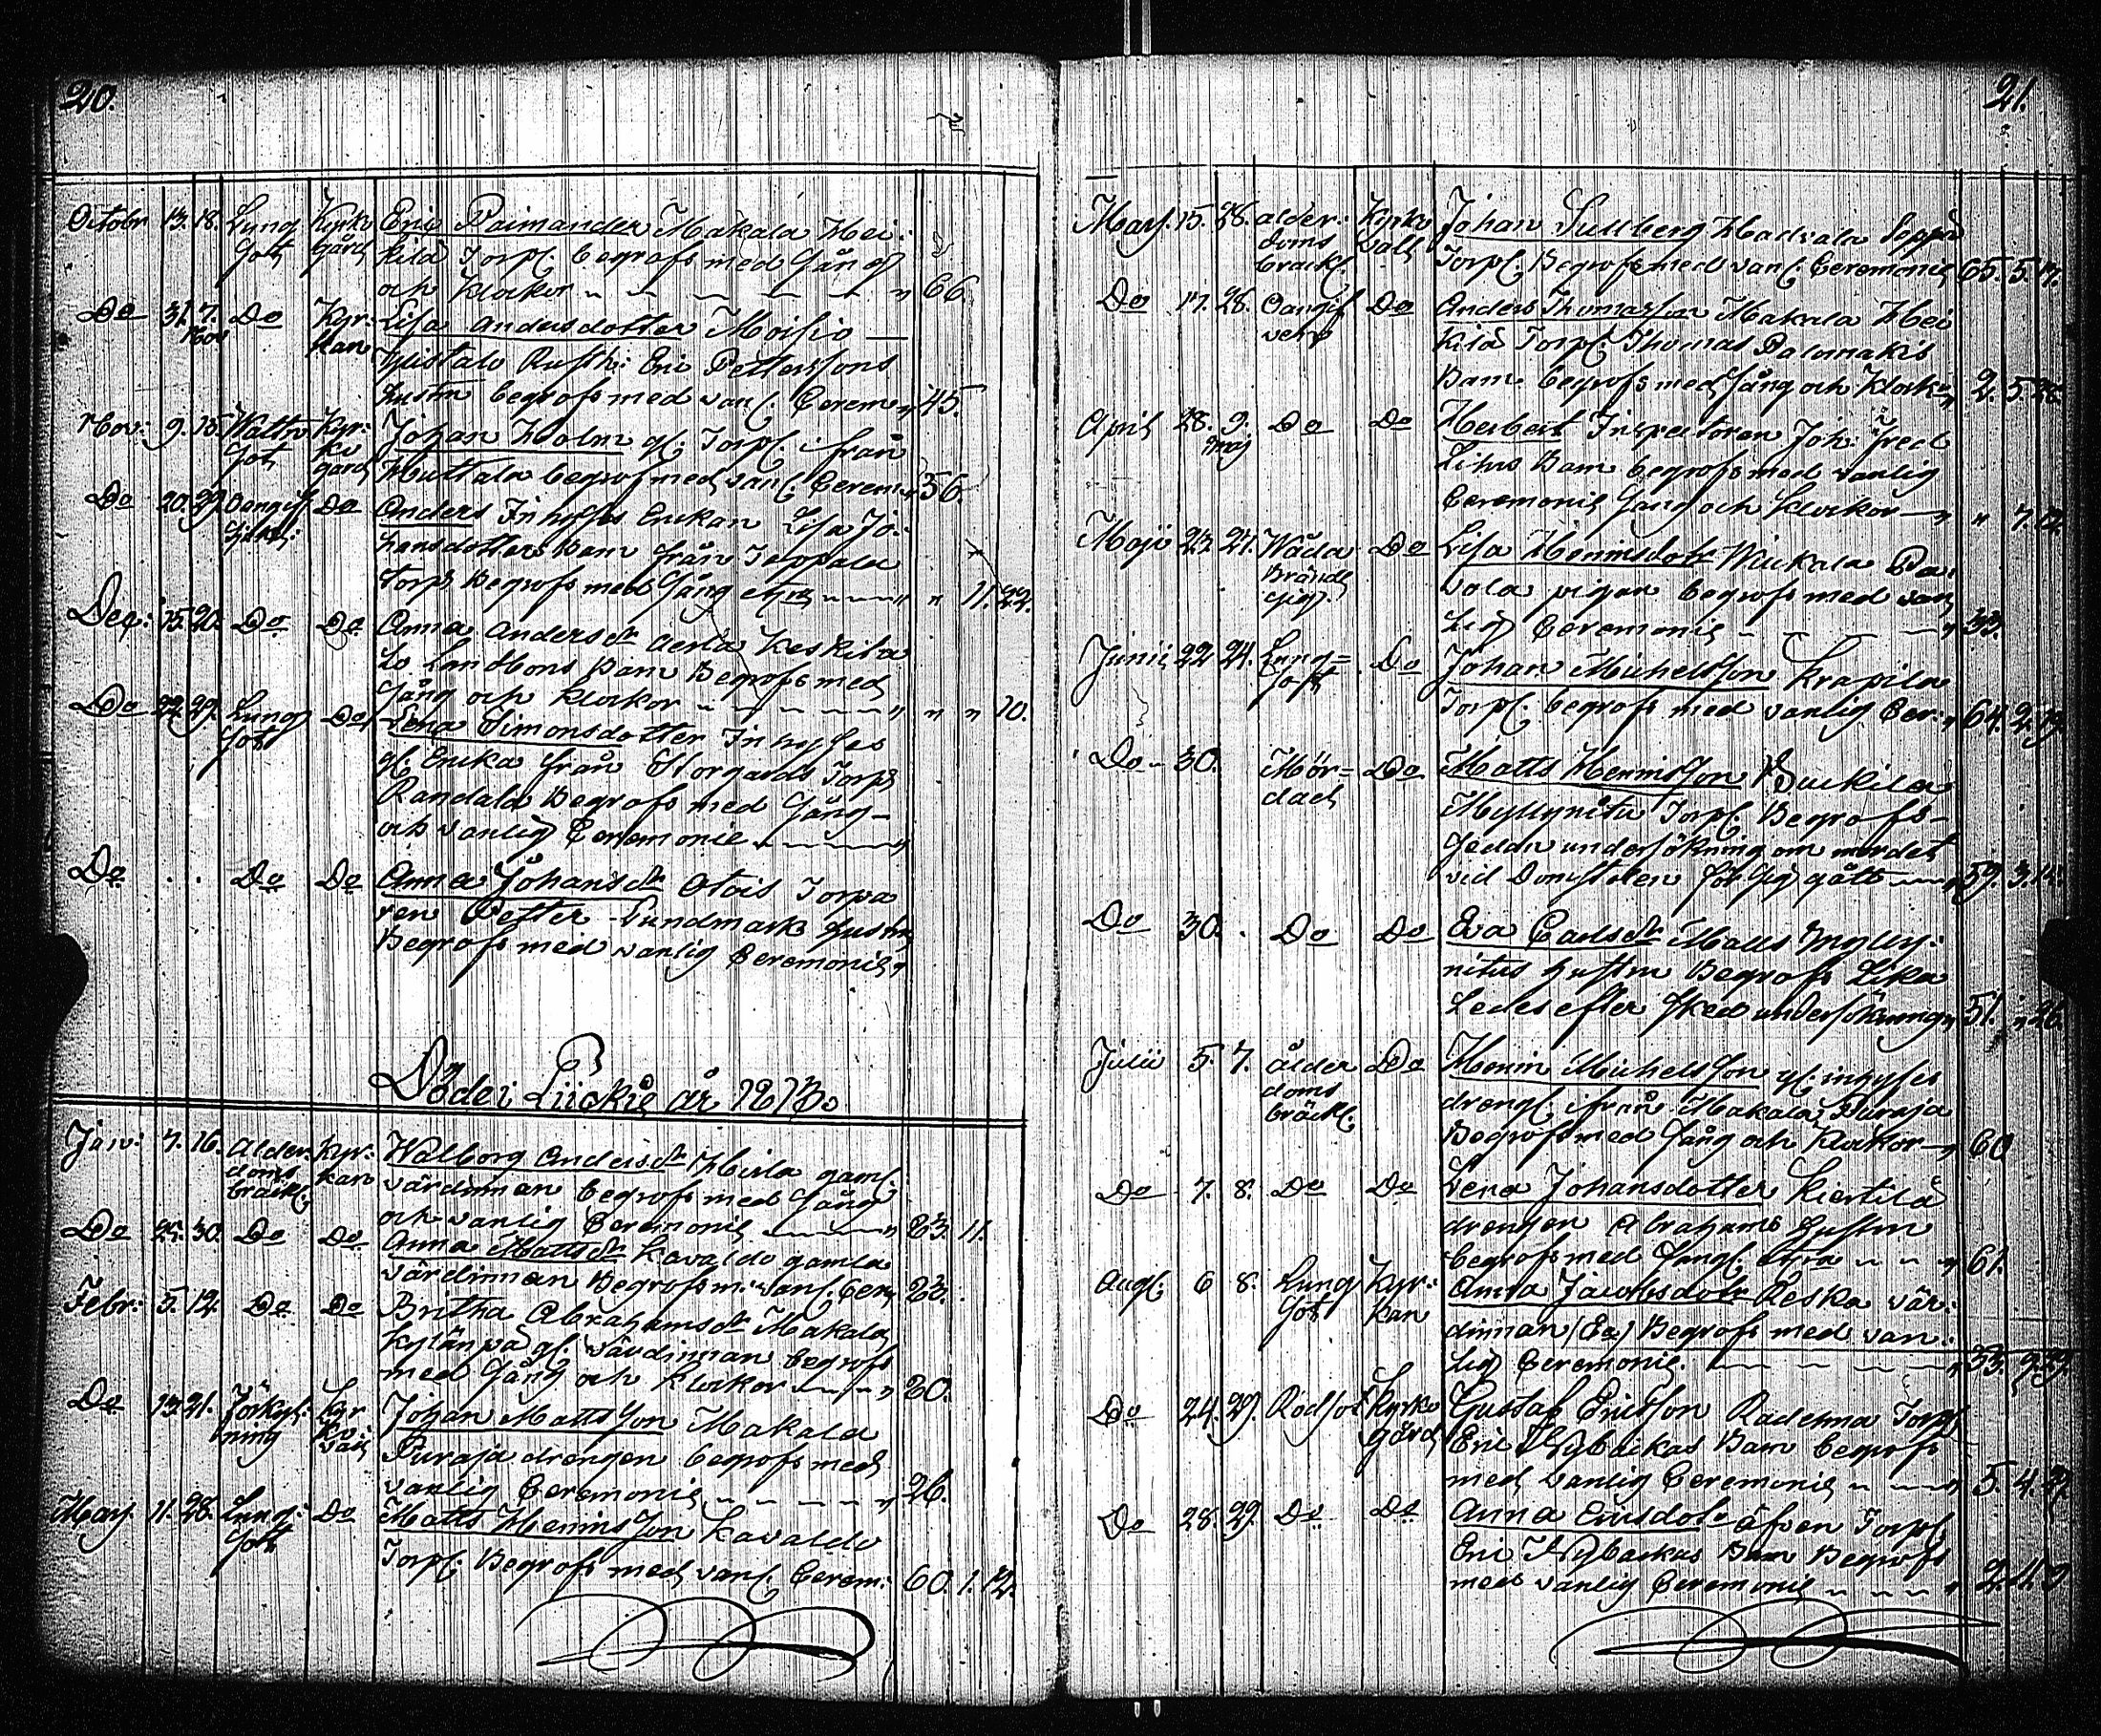 20.
Octobr 13. 18. Lung Kyrko Eric Paimander Makala Hei:
Sot gård kilä Torp. begrofs med Sång
och Klockor 66
Do 31. 7. Do Kyr: Lisa Andersdotter Moisio
Nov kan Gustavs Rusth: Eric Petterssons
hustru begrofs med vanl. Cerem 45.
Nov: 9. 15. Kyr: Johan Holm gl. Torp. ifrån
Sot ko Huttala begrofs med vanl. Cerem 56.
gård
Do 20. 29. Oangif Do Anders Inhyses Enkan Lisa Jo:
hansdotters Barn från Seppälä
Torp, Begrofs med Sång etc " 11. 22.
Dec: 15. 20. Do Do Anna Andersdr Aerla Keskita
lo Landbons Barn Begrofs med
Sång och Klockor " " 10.
Do 22. 29. Lung Do Lena Simonsdotter Inhyses
Sot gl. Enka från Storgårds Torp
Randala Begrofs med Sång
och vanlig Ceremonie
Do . . Do Do Anna Johansdr Otois Torpa
ren Petter Sundmarks hustru
Begrofs med vanlig Ceremonie
Döde i år 1813.
Jan: 7. 16. Ålder Kyr: Walborg Andersdr gaml.
doms kan värdinnan begrofs med Sång
bräckl. och vanlig Ceremonie 83. 11.
Do 25. 30. Do Do Anna Mattsdr Kavaldo gamla
värdinnan Begrofs m: vanl. Cerm 83.
Febr: 5. 12. Do Do Britha Abrahamsdr Makala
Kylänpä gl. värdinnan begrofs
med Sång och Klockor 80.
Do 13. 21. Förkyl: Kyr Johan Mattsson Makala
ning ko: Puraja drengen begrofs med
vall vanlig Ceremonie 26.
Mars. 11. 28. Lung: Do Matts Henrisson Kavaldo
Sot Torp: Begrofs med vanl. Cerem: 60. 1. 12.
21.
Mars. 15. 28. Ålder: Kyrko Johan Sullberg Madvala Seppä
doms vall Torp. Begrofs med vanl. Ceremonie 65. 5. 17.
bräckl.
Do 17. 28. Oangif Do Anders Thomasson Makala Hei
kilä Torp. Thomas Palomäkis
Barn begrofs med Sång och Klock 2. 5. 28.
April 28. 9. Do Do Herbert Inspectoren Joh: Fred
Maj Litus Barn begrofs med vanlig
Ceremonie Sång och Klockor " 7. 12.
Maji 23. 27. Våda Do Lisa Henrisdotr Wickala Pa:
Bränd vola pigan begrofs med van
sig lig Ceremonie 33.
Junii 22 24. Lung= Do Johan Michelsson Krapila
sot Torp. begrofs med vanlig Cer: 64. 2. 19.
Do 30. Mör= Do Matts Henrisson
dad Myllynitu Torp. Begrofs
sedan undersökning om mordet
vid Domstolen för sig gått 59. 3. 14.
Do 30. . Do Do Eva Carlsdr Matts Mylly:
nitus hustru Begrofs Lika
Ledes efter sked undersökning 51. " 26.
Julii 5. 7. ålder Do Henrin Michelsson gl. inhyses
doms drengl. ifrån Makala Puraja
bräckl. Begrofs med Sång och Klockor 60
Do 7. 8. Do Do Lena Johansdotter Kiertilä
drengen Abrahams hustru
begrofs med Sång etc 61.
Aug. 6 8. Lung Kyr: Anna Jacobsdotr Reska vär:
Sot kan dinnan (Ea) Begrofs med van:
lig Ceremonie 53. 9. 29.
Do 24. 29. Rödsot Kyrko Gustaf Ericsson Radelma Torp
gård Eric Nybackas Barn begrofs
med vanlig Ceremonie 5. 4. 27.
Do 28. 29. Do Do Anna Ericsdotr äfven Torp.
Eric Nybackas Barn Begrofs
med vanlig Ceremonie 2. 11. 9